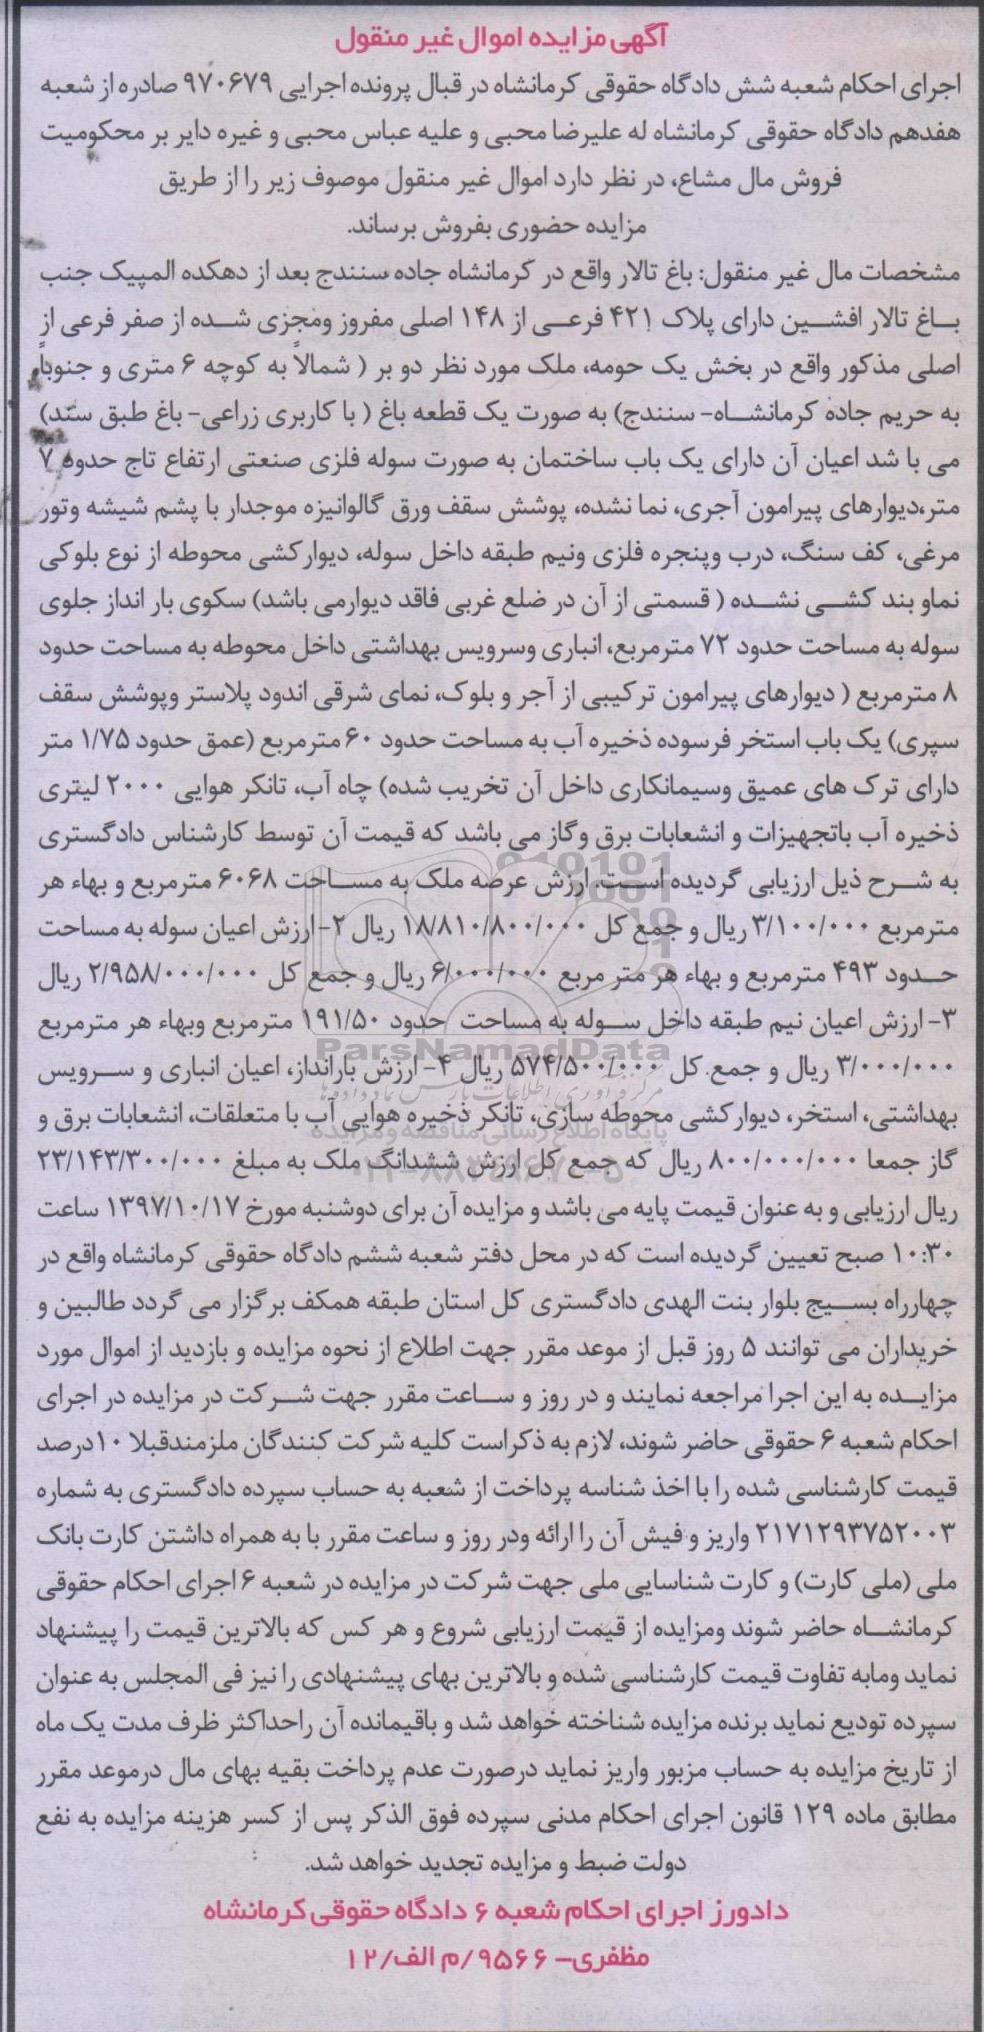 آگهی مزایده اموال غیر منقول
اجرای احکام شعبه شش دادگاه حقوقی کرمانشاه در قبال پرونده اجرایی ۹۷۰۶۷۹ صادره از شعبه
هفدهم دادگاه حقوقی کرمانشاه له علیرضا محبی و علیه عباس محبی و غیره دایر بر محکومیت
فروش مال مشاع، در نظر دارد اموال غیر منقول موصوف زیر را از طریق
مزایده حضوری بفروش برساند.
مشخصات مال غیر منقول: باغ تالار واقع در کرمانشاه جاده سنندج بعد از دهکده المپیک جنب
باغ تالار افشین دارای پلاک ۴۲۱ فرعی از ۱۴۸ اصلی مفروز ومجزی شده از صفر فرعی از
اصلی مذکور واقع در بخش یک حومه، ملک مورد نظر دو بر ( شمالاً به کوچه ۶ متری و جنوباً
به حریم جاده کرمانشاه- سنندج) به صورت یک قطعه باغ ( با کاربری زراعی- باغ طبق سند)
می با شد اعیان آن دارای یک باب ساختمان به صورت سوله فلزی صنعتی ارتفاع تاج حدود ۷
متر،دیوارهای پیرامون آجری، نما نشده، پوشش سقف ورق گالوانیزه موجدار با پشم شیشه وتور
مرغی، کف سنگ، درب وپنجره فلزی ونیم طبقه داخل سوله، دیوارکشی محوطه از نوع بلوکی
نماو بند کشی نشده ( قسمتی از آن در ضلع غربی فاقد دیوارمی باشد) سکوی بار انداز جلوی
سوله به مساحت حدود ۷۲ مترمربع، انباری وسرویس بهداشتی داخل محوطه به مساحت حدود
۸ مترمربع ( دیوارهای پیرامون ترکیبی از آجر و بلوک، نمای شرقی اندود پلاستر وپوشش سقف
سپری) یک باب استخر فرسوده ذخیره آب به مساحت حدود ۶۰ مترمربع (عمق حدود ۱/۷۵ متر
دارای ترک های عمیق وسیمانکاری داخل آن تخریب شده) چاه آب، تانکر هوایی ۲۰۰۰ لیتری
ذخیره آب باتجهیزات و انشعابات برق وگاز می باشد که قیمت آن توسط کارشناس دادگستری
به شرح ذیل ارزیابی گردیده است. ارزش عرصه ملک به مساحت ۶۰۶۸ مترمربع و بهاء هر
مترمربع ۳/۱۰۰/۰۰۰ ریال و جمع کل ۱۸/۸۱۰/۸۰۰/۰۰۰ ریال ۲- ارزش اعیان سوله به مساحت
حدود ۴۹۳ مترمربع و بهاء هر متر مربع ۶/۰۰۰/۰۰۰ ریال و جمع کل ۲/۹۵۸/۰۰۰/۰۰۰ ریال
۳- ارزش اعیان نیم طبقه داخل سوله به مساحت حدود ۱۹۱/۵۰ مترمربع وبهاء هر مترمربع
۳/۰۰۰/۰۰۰ ریال و جمع کل ۵۷۴/۵۰۰/۰۰۰ ریال ۴- ارزش بارانداز، اعیان انباری و سرویس
بهداشتی، استخر، دیوارکشی محوطه سازی، تانکر ذخیره هوایی آب با متعلقات، انشعابات برق و
گاز جمعا ۸۰۰/۰۰۰/۰۰۰ ریال که جمع کل ارزش ششدانگ ملک به مبلغ ۲۳/۱۴۳/۳۰۰/۰۰۰
ریال ارزیابی و به عنوان قیمت پایه می باشد و مزایده آن برای دوشنبه مورخ ۱۳۹۷/۱۰/۱۷ ساعت
۱۰:۳۰ صبح تعیین گردیده است که در محل دفتر شعبه ششم دادگاه حقوقی کرمانشاه واقع در
چهارراه بسیج بلوار بنت الهدی دادگستری کل استان طبقه همکف برگزار می گردد طالبین و
خریداران می توانند ۵ روز قبل از موعد مقرر جهت اطلاع از نحوه مزایده و بازدید از اموال مورد
مزایده به این اجرا مراجعه نمایند و در روز و ساعت مقرر جهت شرکت در مزایده در اجرای
احکام شعبه ۶ حقوقی حاضر شوند، لازم به ذکراست کلیه شرکت کنندگان ملزمندقبلا ۱۰درصد
قیمت کارشناسی شده را با اخذ شناسه پرداخت از شعبه به حساب سپرده دادگستری به شماره
۲۱۷۱۲۹۳۷۵۲۰۰۳ واریز و فیش آن را ارائه ودر روز و ساعت مقرر با به همراه داشتن کارت بانک
ملی (ملی کارت) و کارت شناسایی ملی جهت شرکت در مزایده در شعبه ۶ اجرای احکام حقوقی
کرمانشاه حاضر شوند ومزایده از قیمت ارزیابی شروع و هر کس که بالاترین قیمت را پیشنهاد
نماید ومابه تفاوت قیمت کارشناسی شده و بالاترین بهای پیشنهادی را نیز فی المجلس به عنوان
سپرده تودیع نماید برنده مزایده شناخته خواهد شد و باقیمانده آن راحداکثر ظرف مدت یک ماه
از تاریخ مزایده به حساب مزبور واریز نماید درصورت عدم پرداخت بقیه بهای مال درموعد مقرر
مطابق ماده ۱۲۹ قانون اجرای احکام مدنی سپرده فوق الذکر پس از کسر هزینه مزایده به نفع
دولت ضبط و مزایده تجدید خواهد شد.
دادورز اجرای احکام شعبه ۶ دادگاه حقوقی کرمانشاه
مظفری- ۹۵۶۶/م الف/۱۲
ParsNamadData
پایگاه اطلاع رسانی مناقصه و مزایده